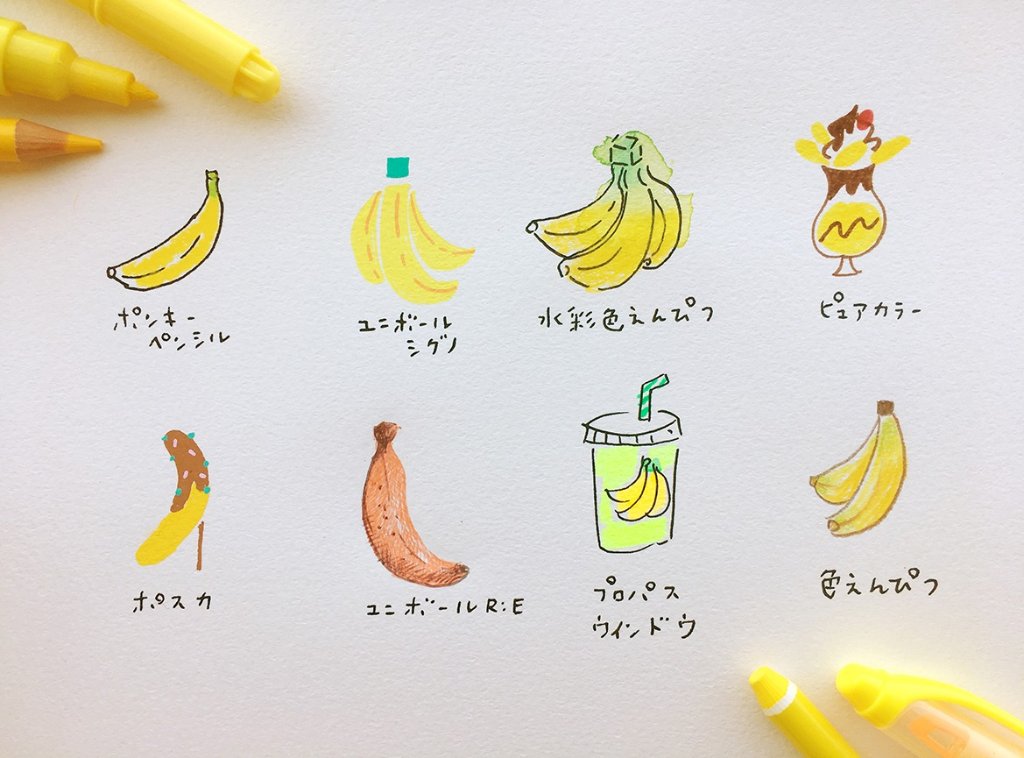 ポンキー
ペンシル
ユニボール
シグノ
水彩色えんぴつ
ピュアカラー
ポスカ
ユニボールR:E
プロパス
ウインドウ
色えんぴつ